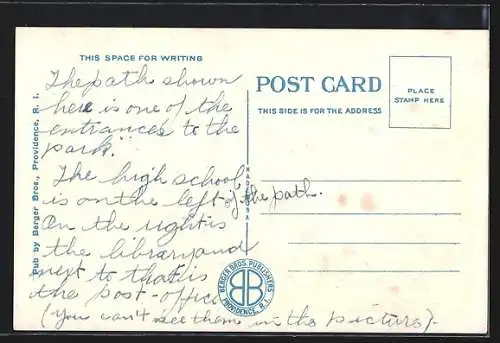 THIS SPACE FOR WRITING
The path shown
here is one of the
entrances to the
park.
The high school
is on the left of the path.
On the right is
the library and
next to that is
the post-office
(You can't see them in the picture).
Pub by Berger Bros., Providence, R. I.
POST CARD
THIS SIDE IS FOR THE ADDRESS
PLACE
STAMP HERE
MADE IN USA
BERGER BROS. PUBLISHERS
BB
PROVIDENCE, R.I.